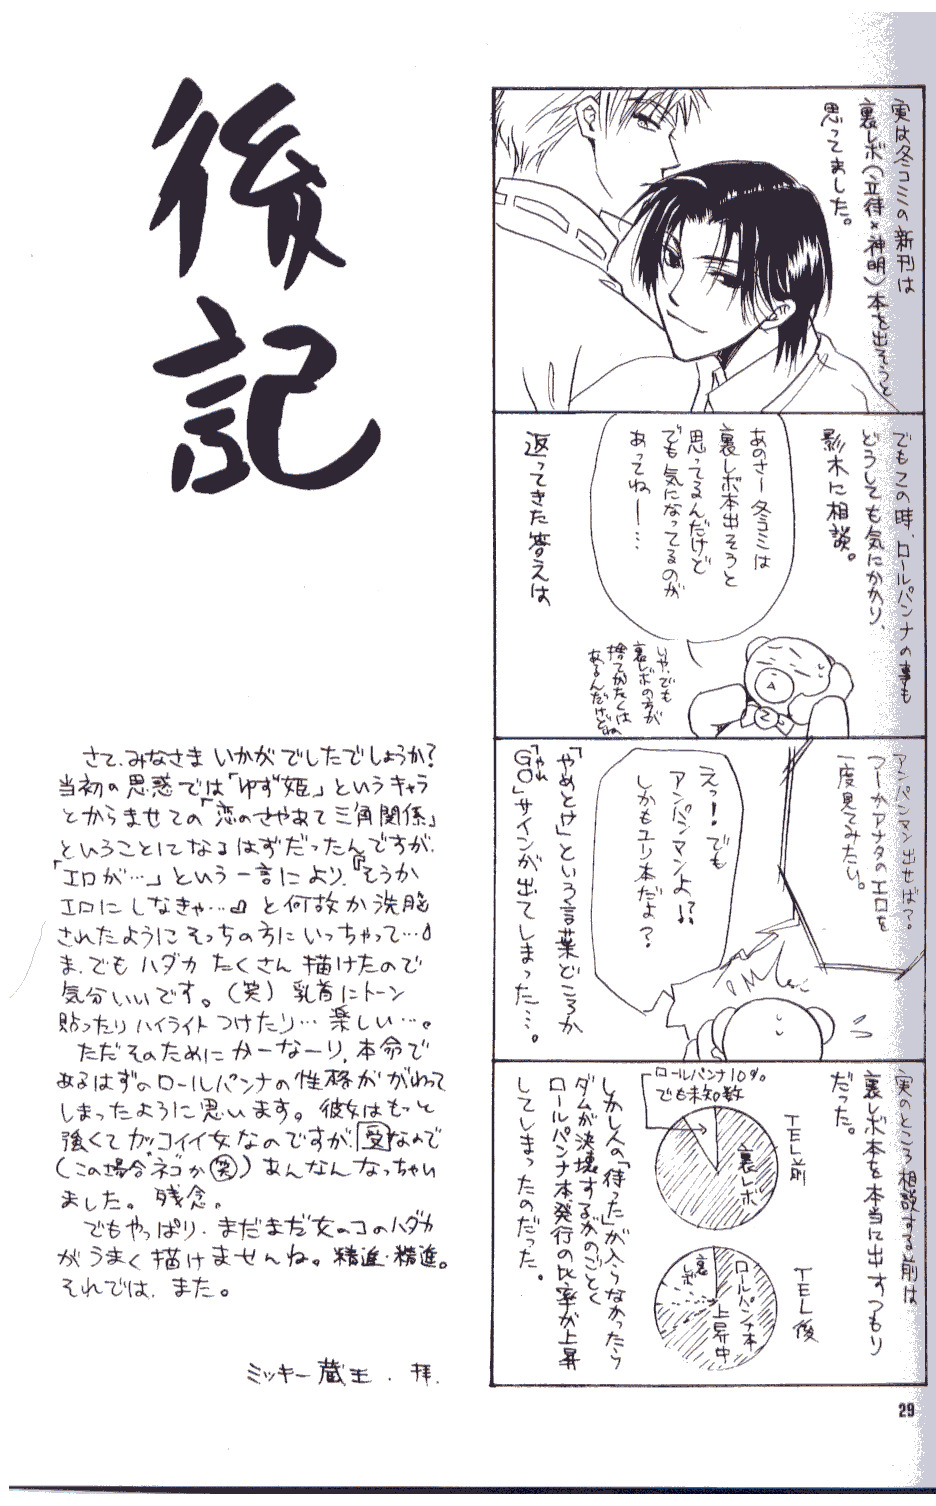 後記
実は冬コミの新刊は
裏レボ(立待×神明)本を出そうと
思ってました。
でもこの時、ロールパンナの事も
どうしても気にかかり、
影木に相談。
あのさー冬コミは
裏レボ本出そうと
思ってるんだけど
でも気になってるのが
あってねー…
いや、でも
裏レボの方が
捨てがたくは
あるんだけどね
返ってきた答えは
アンパンマン出せば?
つーかアナタのエロを
一度見てみたい。
えっ!でも
アンパンマンよ!?
しかもユリ本だよ?
「やめとけ」という言葉どころか
「やれ
GO」サインが出てしまった…。
実のところ相談する前は
裏レボ本を本当に出すつもり
だった。
TEL前
ロールパンナ10%
でも未知数
裏レボ
TEL後
ロールパンナ本
上昇中
裏レボ
しかし人の「待った」が入らなかったら
ダムが決壊するかのごとく
ロールパンナ本発行の比率が上昇
してしまったのだった。
さて、みなさま いかがでしたでしょうか?
当初の思惑では「ゆず姫」というキャラ
とからませての「恋のさやあて三角関係」
ということになるはずだったんですが、
「エロが…」という一言により、『そうか
エロにしなきゃ…』と何故か洗脳
されたようにそっちの方にいっちゃって…
ま、でもハダカたくさん描けたので
気分いいです。(笑)乳首にトーン
貼ったりハイライトつけたり…楽しい…。
ただそのためにかーなーり、本命で
あるはずのロールパンナの性格がかわって
しまったように思います。彼女はもっと
強くてカッコイイ女なのですが、受なので
(この場合ネコか笑)あんなんなっちゃい
ました。残念。
でもやっぱり、まだまだ女のコのハダカ
がうまく描けませんね。精進・精進。
それでは、また。
ミッキー蔵王.拝.
29